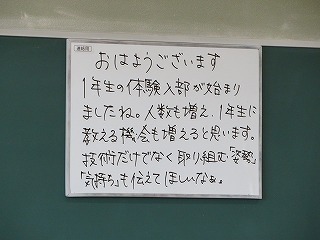 連絡用
おはようございます
1年生の体験入部が始まり
ましたね。人数も増え、1年生に
教える機会も増えると思います。
技術だけでなく取り組む「姿勢」
「気持ち」も伝えてほしいなぁ。